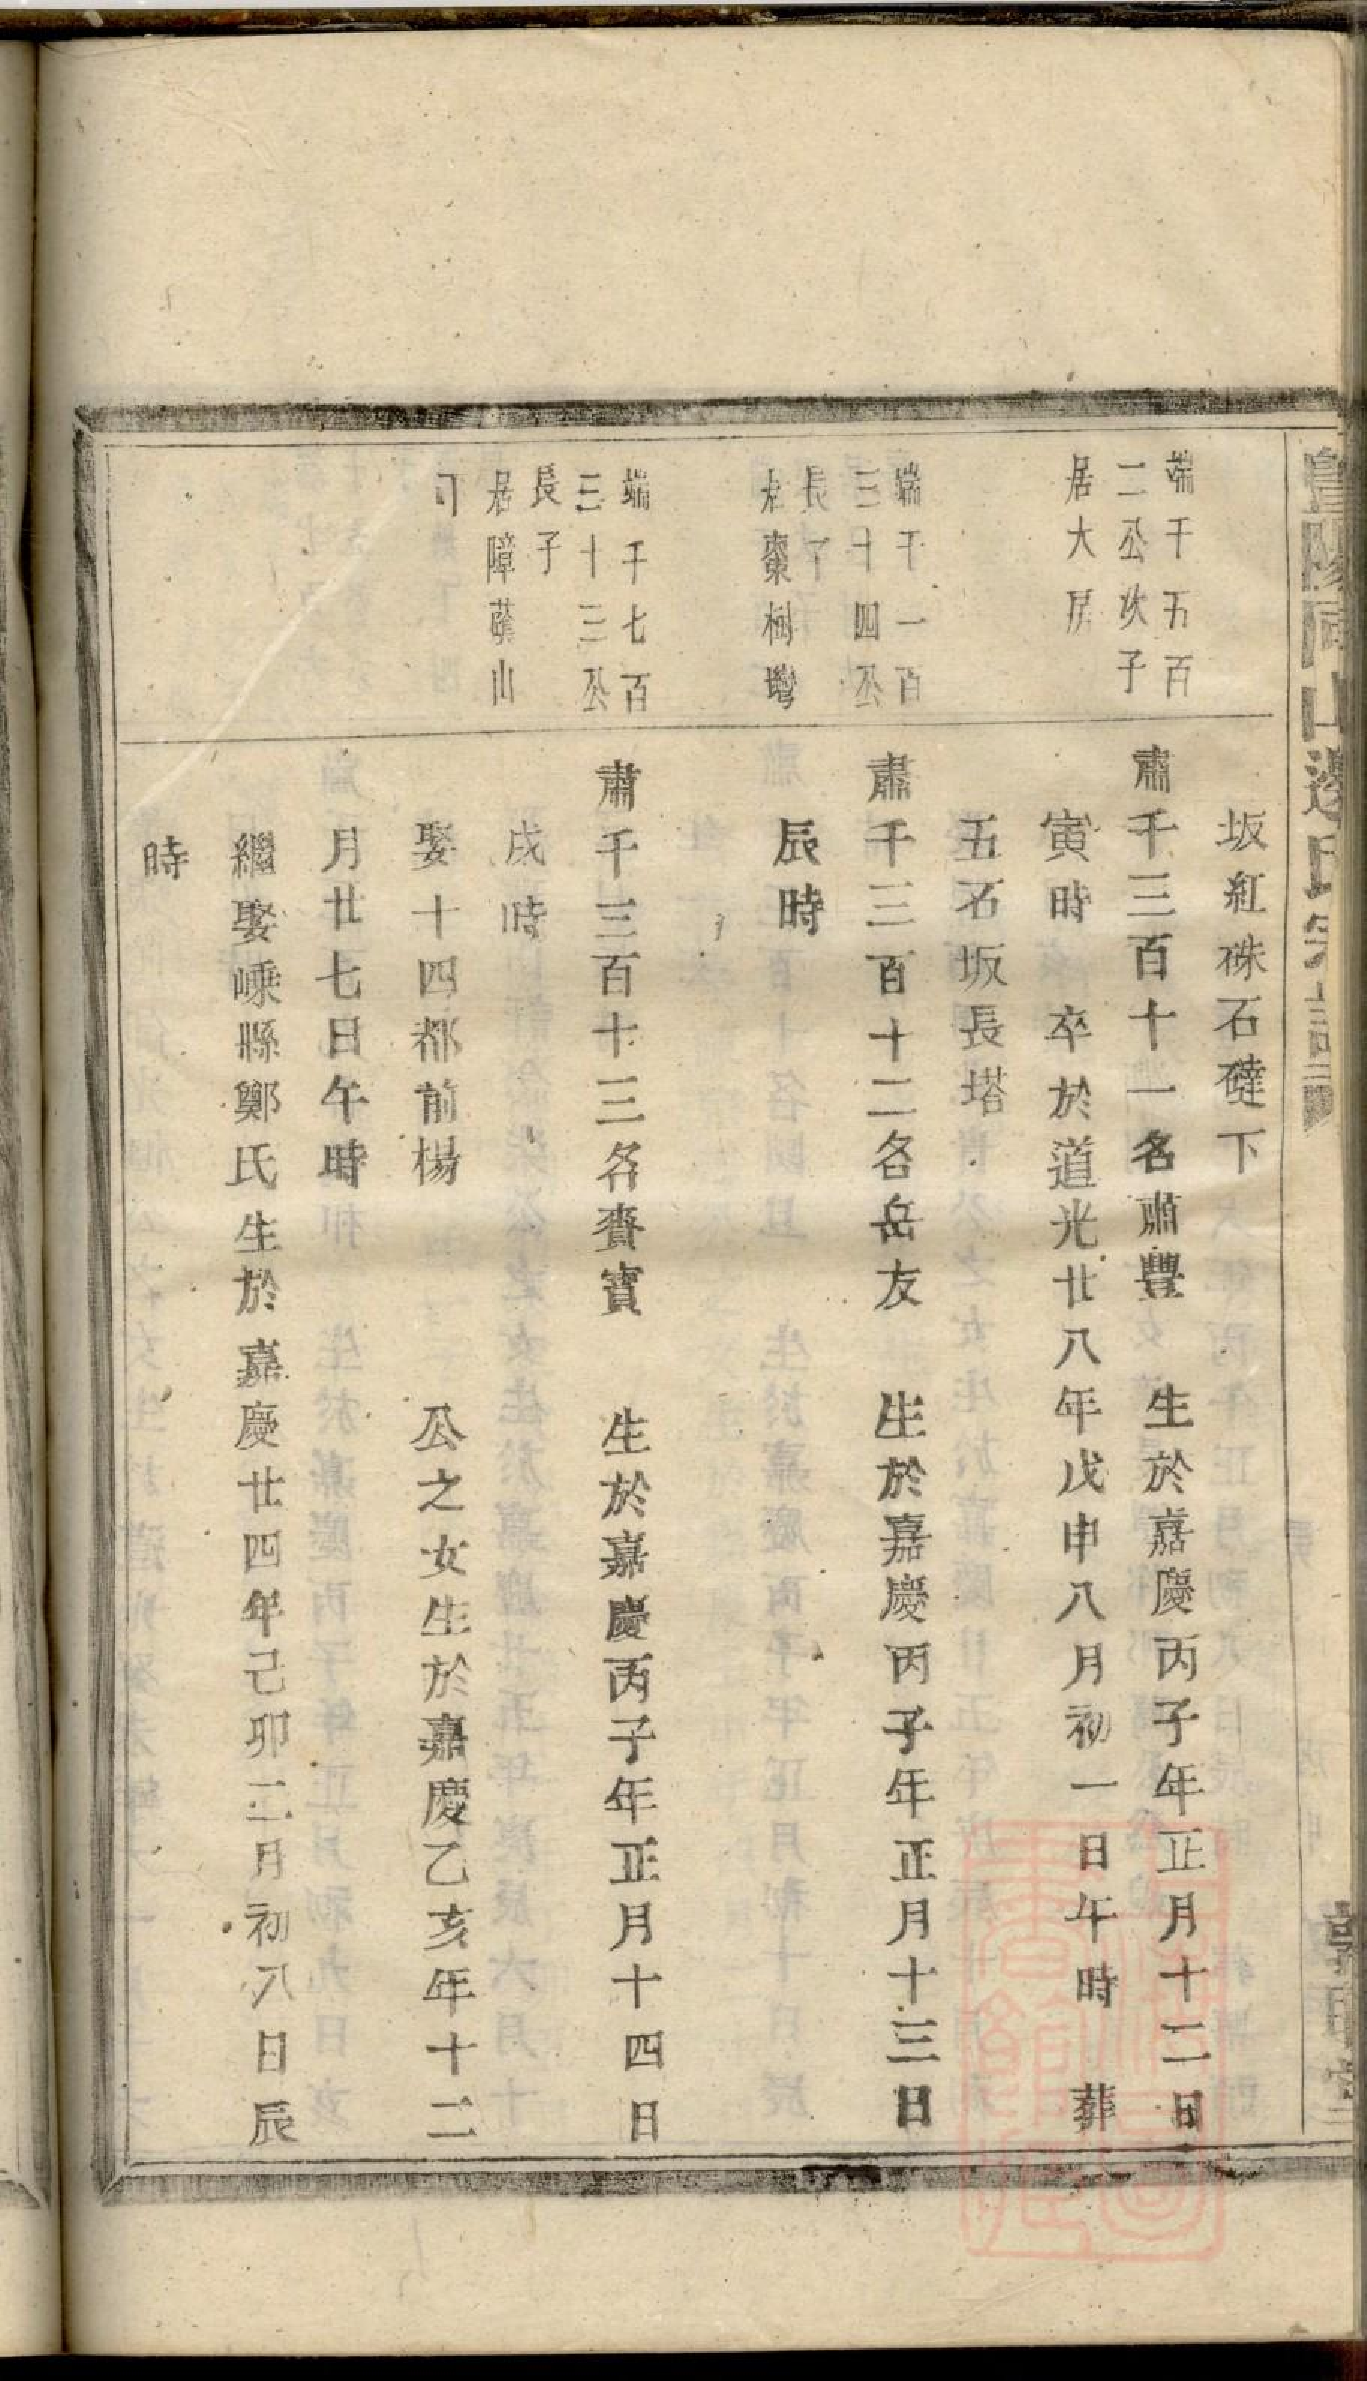 暨陽同山邊氏宗譜
坂紅硃石䃮下
端千五百
二公次子
居大房
肅千三百十一名肅豐 生於嘉慶丙子年正月十二日
寅時 卒於道光廿八年戊申八月初一日午時 葬
五石坂長塔
端千一百
三十四公
長子
棗樹灣
肅千三百十二名岳友 生於嘉慶丙子年正月十三日
辰時
端千七百
三十三公
長子
居障蔡山
下
肅千三百十三名賚寶 生於嘉慶丙子年正月十四日
戌時
娶十四都前楊 公之女生於嘉慶乙亥年十二
月廿七日午時
繼娶嵊縣鄭氏生於嘉慶廿四年己卯二月初八日辰
時